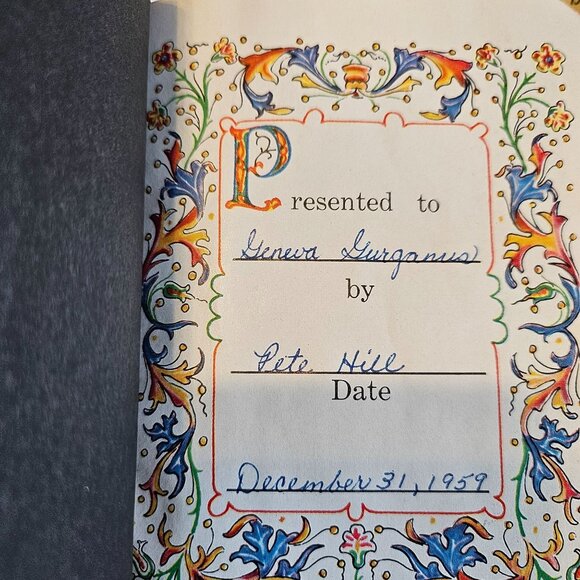 Presented to
Geneva Gurganus
by
Pete Hill
Date
December 31, 1959